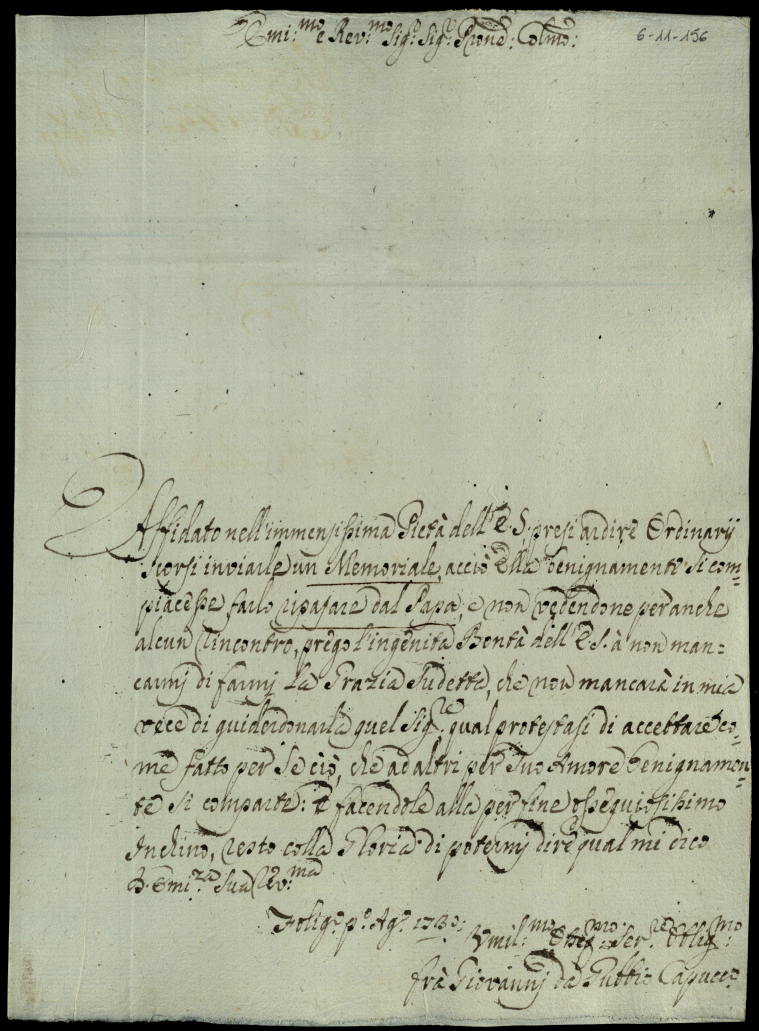 Emi:mo e Rev:mo Sig.r Sig.r Prone: Colmo:
6-11-156
Affidato nell'immensissima Pietà dell'E.S. presi ardire Ordinarij
scorsi inviarle un Memoriale, acciò Ella benignamente si com=
piacesse farlo ripassare dal Papa, e non vedendone per anche
alcun rincontro, prego l'ingenita Bontà dell'E.S. à non man=
carmj di farmj la Grazia sudetta, che non mancarà in mia
vece di guiderdonarla quel Sig.re, qual protestasi di accettare co=
me fatto per se ciò, che ad altri per suo Amore benignamen=
te si comparte: E facendole alla per fine ossequiosissimo
Inchino, resto colla Gloria di potermj dire qual mi dico
D. Emi:za Sua Rev:ma
Folig.o p.o Ag.o 1730:
Umil:mo Osseq:mo Ser.re Oblig:mo
frà Giovannj da Gubbio Capucc.o